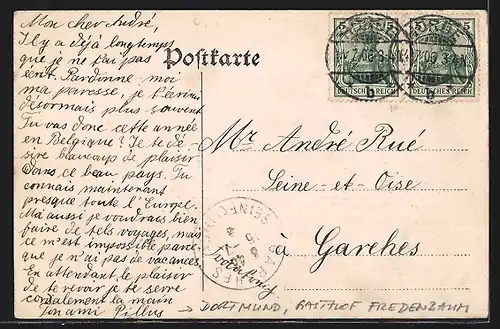 Mon cher André,
Il y a déjà longtemps
que je ne t'ai pas
écrit. Pardonne moi
ma paresse, je t'écrirai
désormais plus souvent
Tu vas donc cette année
en Belgique? Je te dé-
sire baucoup de plaisir
dans ce beau pays. Tu
connais maintenant
presque toute l'Europe.
Moi aussi je voudrais bien
faire de tels voyages, mais
ce m'est impossible parce
que je n'ai pas de vacances.
En attendant le plaisir
de te revoir je te serre
cordalement la main
Ton ami
Postkarte
5 5
DEUTSCHES REICH DEUTSCHES REICH
b b
Mr André Rué
Seine-et-Oise
à Garches
GARCHES
→ DORTMUND, GASTHOF FREDENBAUM